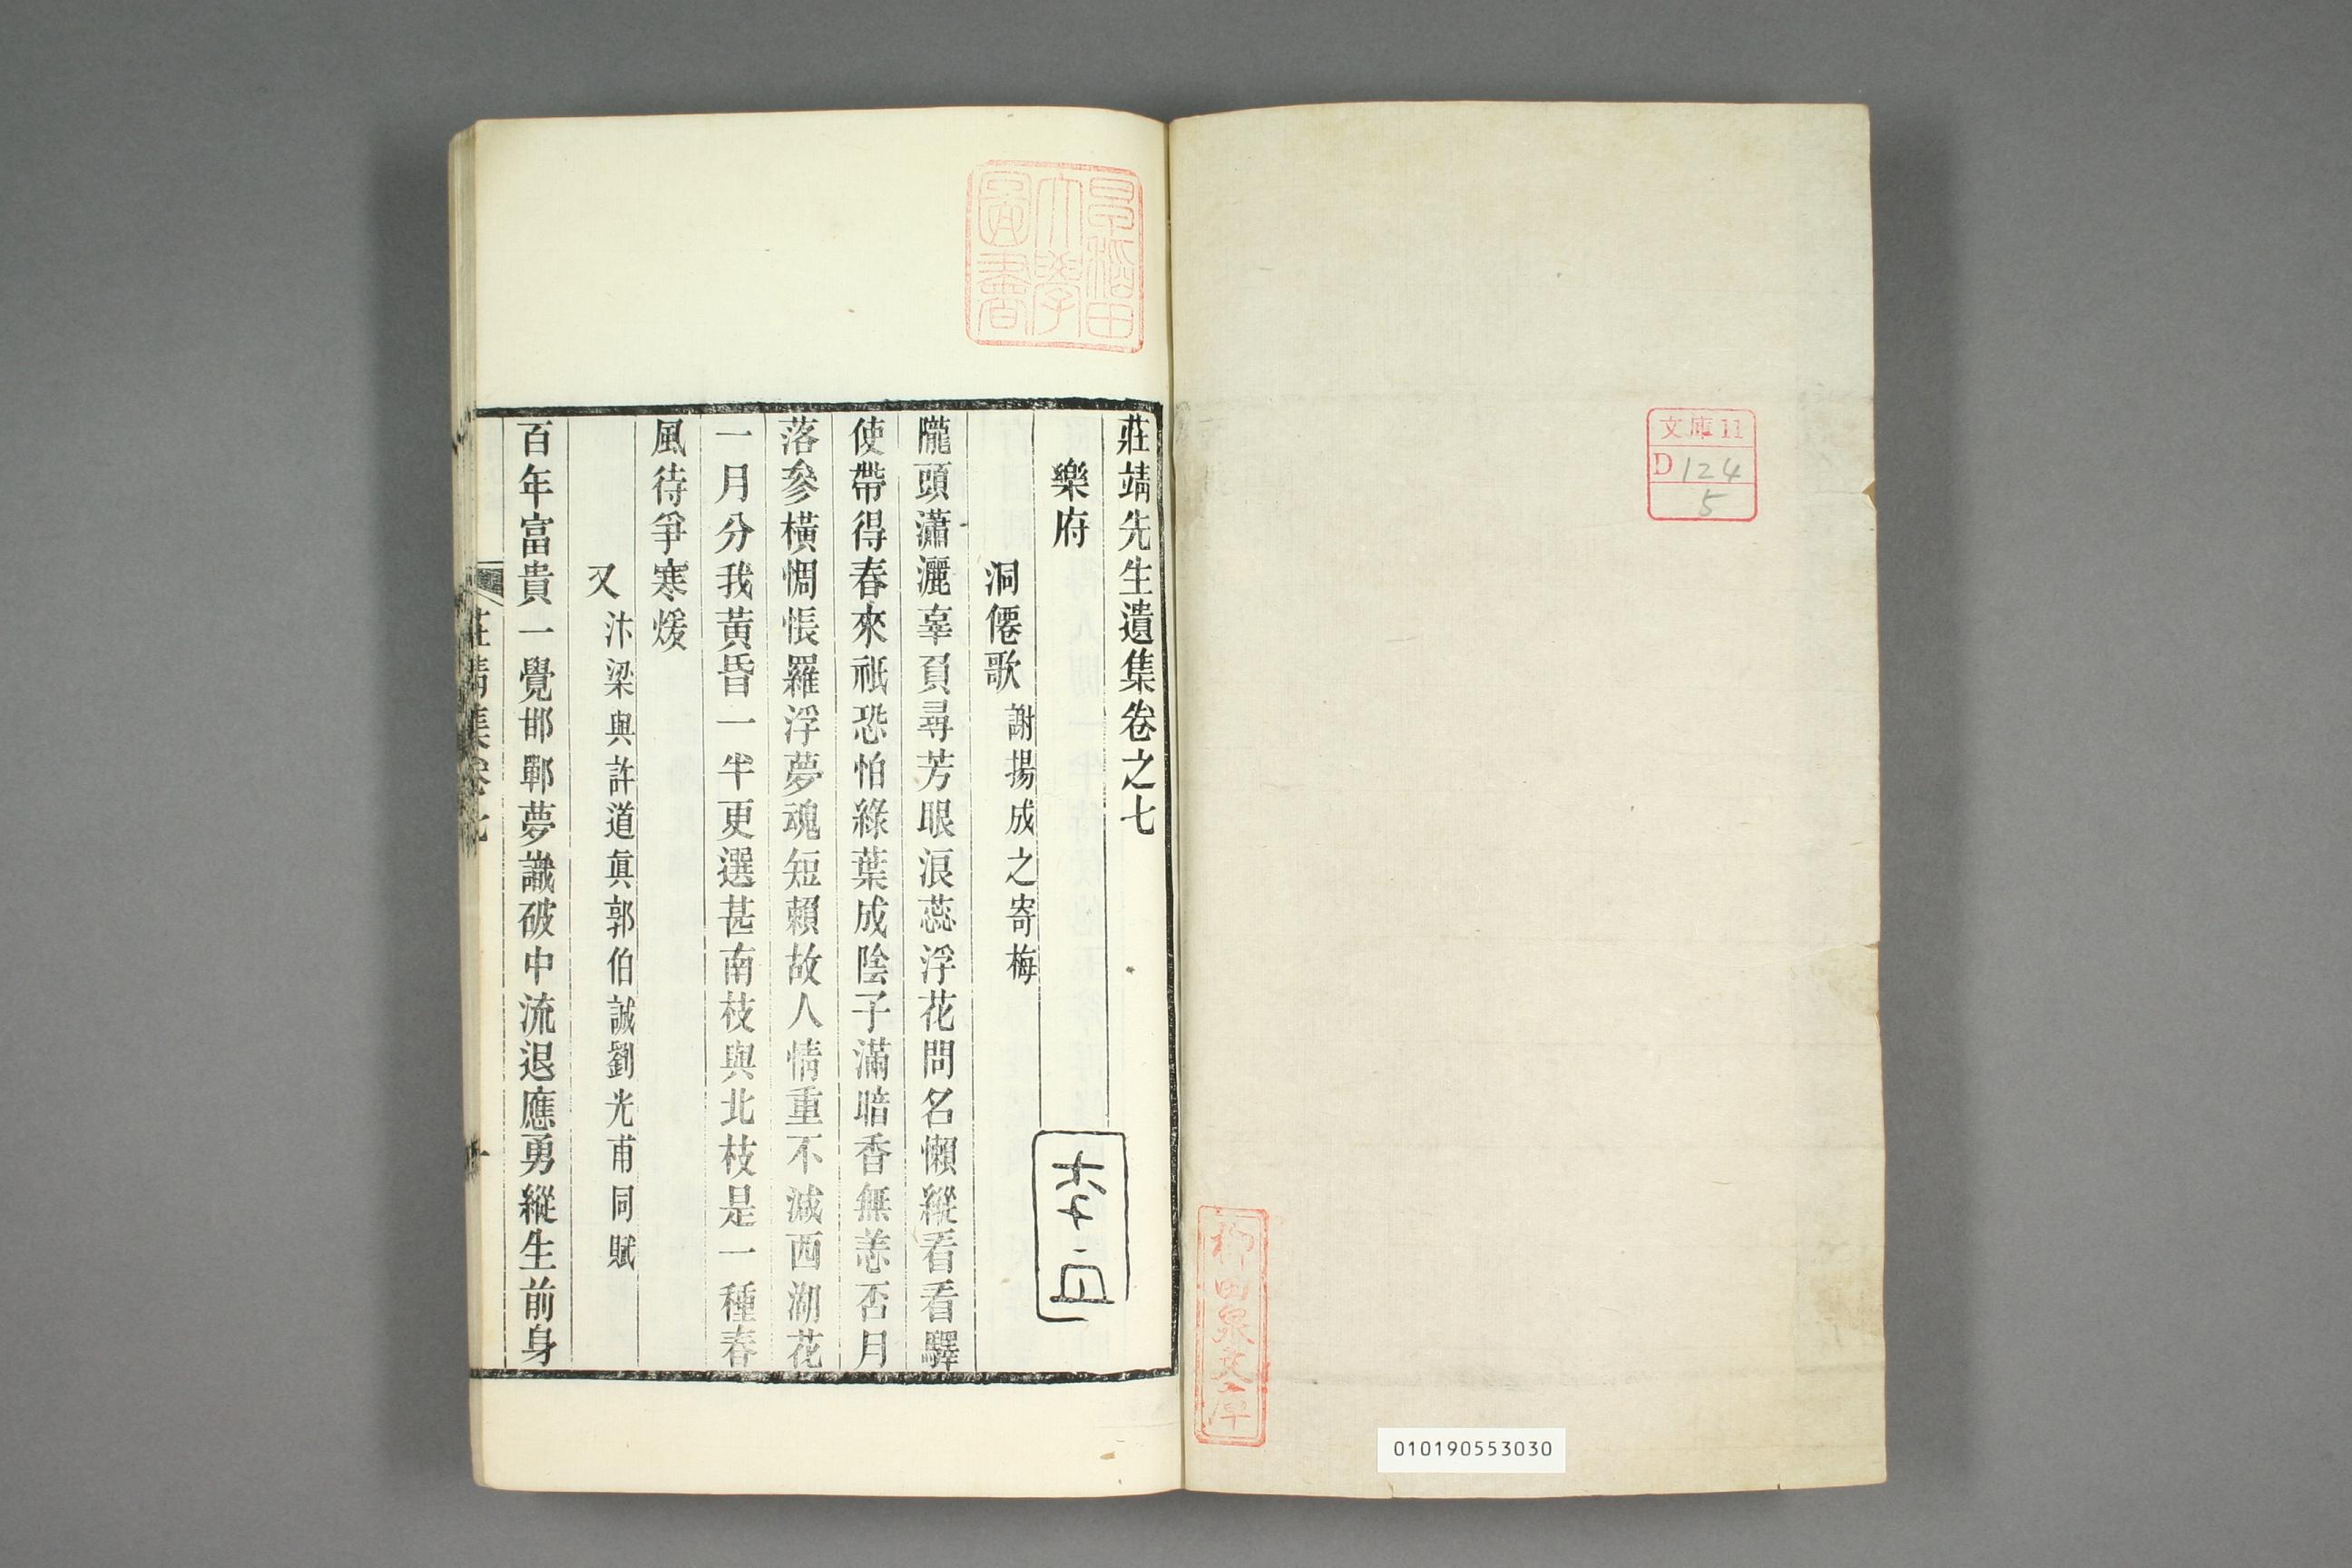 文庫11
D124
5
柳田泉文庫
010190553030
早稲田
大學
圖書
莊靖先生遺集卷之七
樂府
洞僊歌 謝揚成之寄梅
隴頭瀟灑辜負尋芳眼浪蕊浮花問名懶縱看看驛
使帶得春來祇恐怕綠葉成陰子滿暗香無恙否月
落參橫惆悵羅浮夢魂短賴故人情重不減西湖花
一月分我黃昏一半更選甚南枝與北枝是一種春
風待爭寒煖
又 汴梁與許道眞郭伯誠劉光甫同賦
百年富貴一覺邯鄲夢識破中流退應勇縱生前身
莊靖集卷七